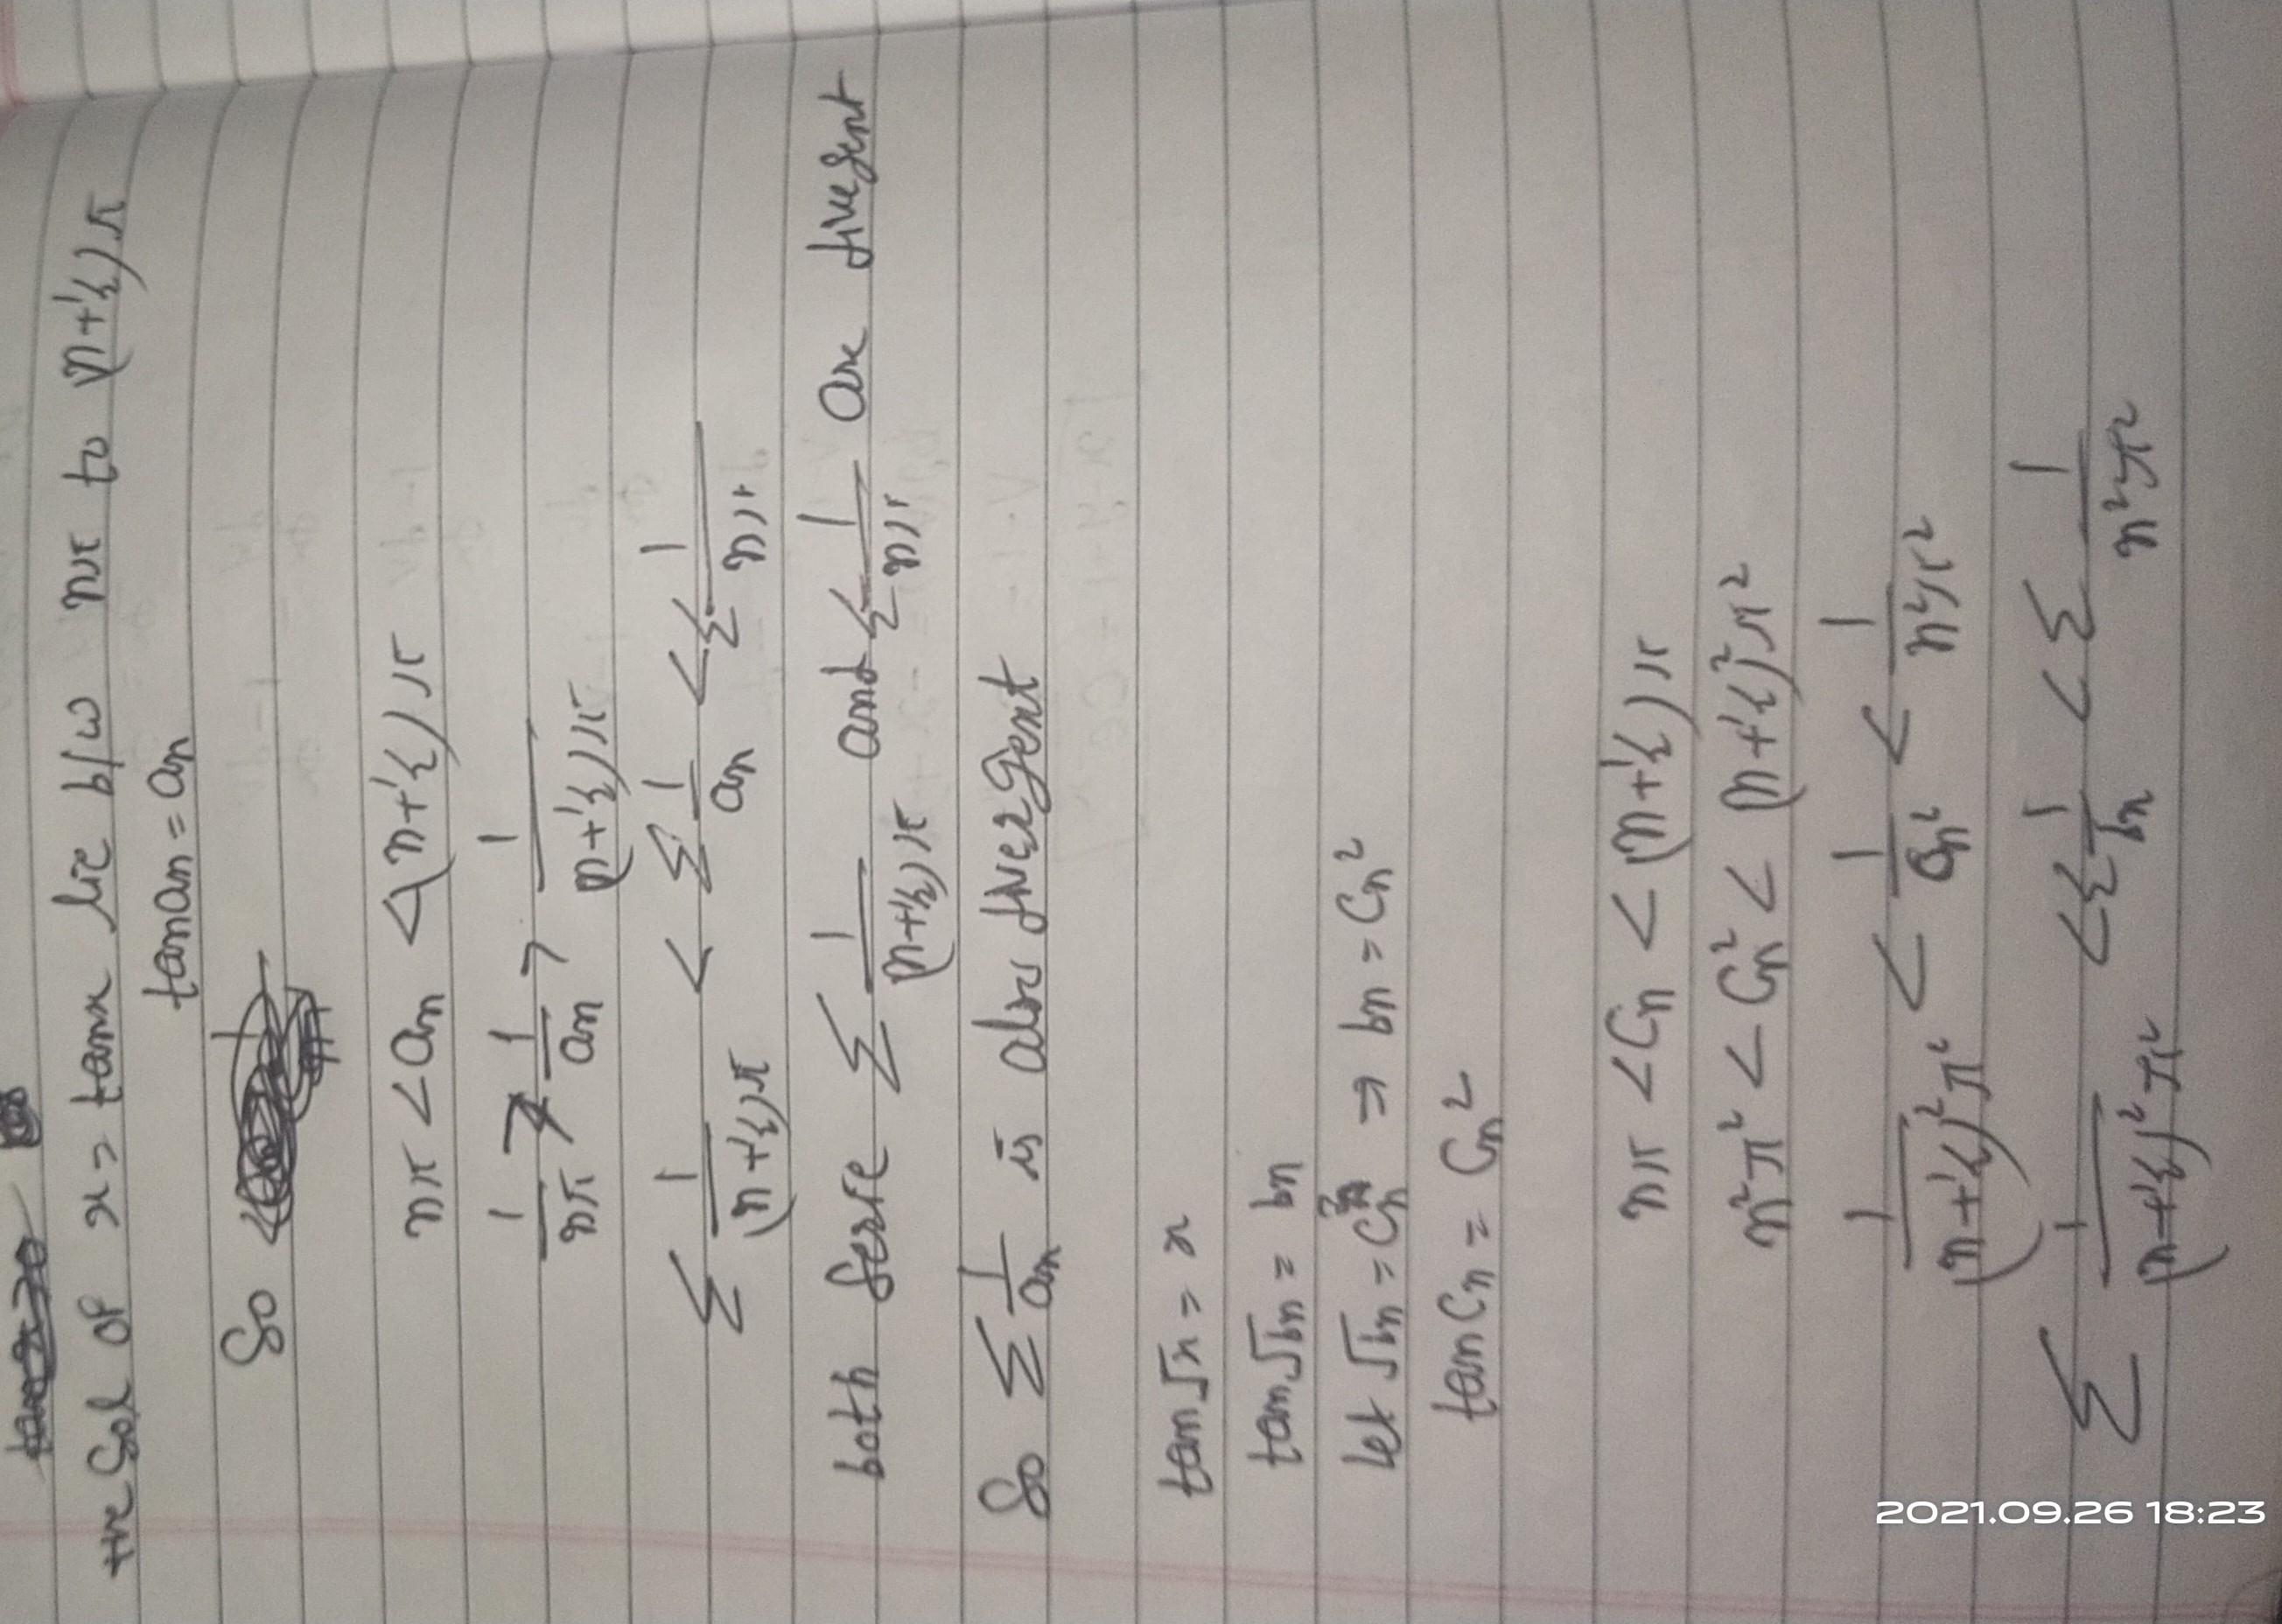 +ve Sol of x = tanx lie b/w nπ to (n+½)π
tan an = an
So
nπ < an < (n+½)π
1/nπ > 1/an > 1/(n+½)π
Σ 1/(n+½)π < Σ 1/an < Σ 1/nπ
both serie Σ 1/(n+½)π and Σ 1/nπ are divegent
So Σ 1/an is also divergent
tan√x = x
tan√bn = bn
let √bn = Cn ⇒ bn = Cn²
tan Cn = Cn²
nπ < Cn < (n+½)π
n²π² < Cn² < (n+½)²π²
1/(n+½)²π² < 1/Cn² < 1/n²π²
Σ 1/(n+½)²π² < Σ 1/bn < Σ 1/n²π²
2021.09.26 18:23